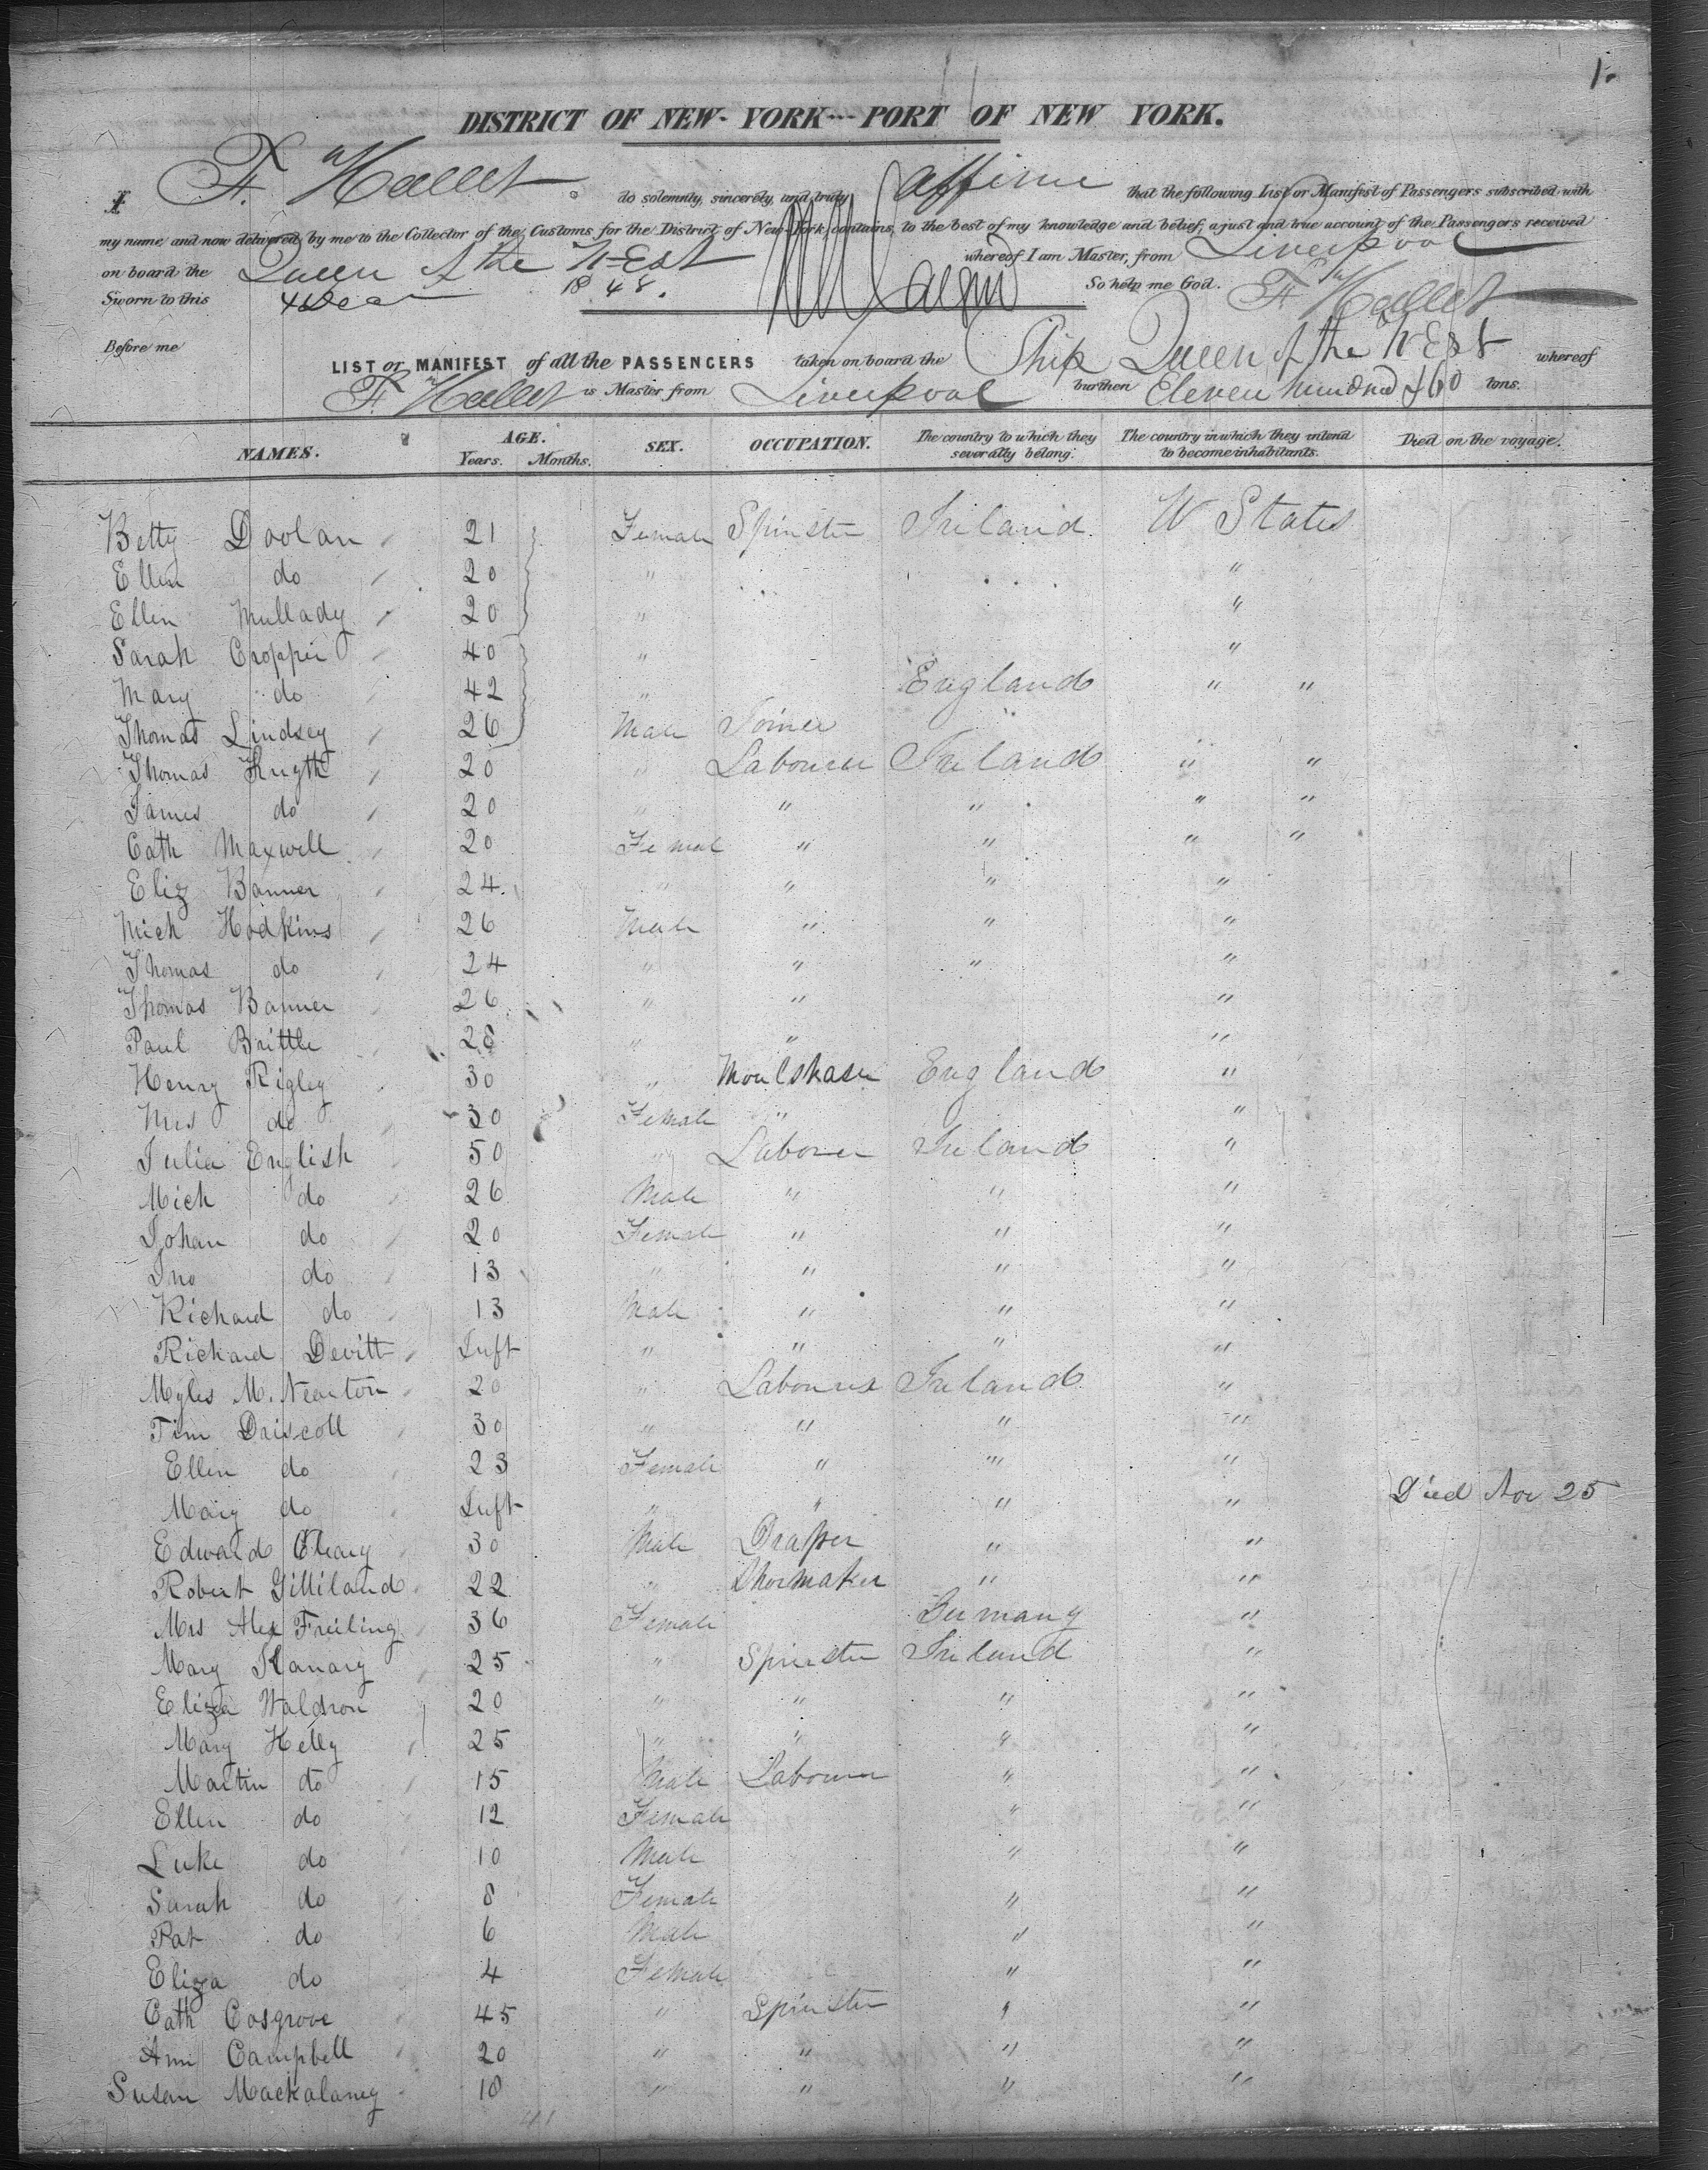 1.
DISTRICT OF NEW-YORK--PORT OF NEW YORK.
I F. W Hallet do solemnly, sincerely, and truly affirm that the following List or Manifest of Passengers subscribed with
my name, and now delivered by me to the Collector of the Customs for the District of New-York, contains, to the best of my knowledge and belief, a just and true account of the Passengers received
on board the Queen of the West whereof I am Master, from Liverpool
Sworn to this 4 Dec 1848. So help me God. F W Hallet
Before me
LIST or MANIFEST of all the PASSENGERS taken on board the Ship Queen of the West whereof
F W Hallet is Master from Liverpool burthen Eleven hundred & 60 tons.
NAMES. AGE. Years. Months. SEX. OCCUPATION. The country to which they severally belong. The country in which they intend to become inhabitants. Died on the voyage.
Betty Doolan 21 Female Spinster Ireland U States
Ellen do 20 " "
Ellen Mullady 20 " "
Sarah Cropper 40 " "
Mary do 42 " England " "
Thomas Lindsey 26 Male Joiner "
Thomas 20 " Labourer Ireland " "
James do 20 " " " " "
Cath Maxwell 20 Female " " " "
Eliz Banner 24 " " " "
Mich Hodkins 26 Male " " "
Thomas do 24 " " " "
Thomas Banner 26 " " "
Paul Brittle 28 " " "
Henry Rigley 30 " England "
Mrs do 30 Female " "
Julia English 50 " Labourer Ireland "
Mich do 26 Male " " "
Johan do 20 Female " " "
Jno do 13 " " " "
Richard do 13 Male " " "
Richard Devitt Inft " " " "
Myles M. Neaxton 20 " Labourer Ireland "
Tim Driscoll 30 " " " "
Ellen do 23 Female " " "
Mary do Inft " " " " Died Nov 25
Edward Cleary 30 Male Draper " "
Robert Gilliland 22 " Shoemaker " "
Mrs Alex Freiling 36 Female Germany "
Mary 25 " Spinster Ireland "
Eliza Waldron 20 " " " "
Mary Kelly 25 " " " "
Martin do 15 Male Labourer " "
Ellen do 12 Female " "
Luke do 10 Male " "
Sarah do 8 Female " "
Pat do 6 Male " "
Eliza do 4 Female " "
Cath Cosgrove 45 " Spinster " "
Ann Campbell 20 " " " "
Susan Mackalaney 18 " " " "